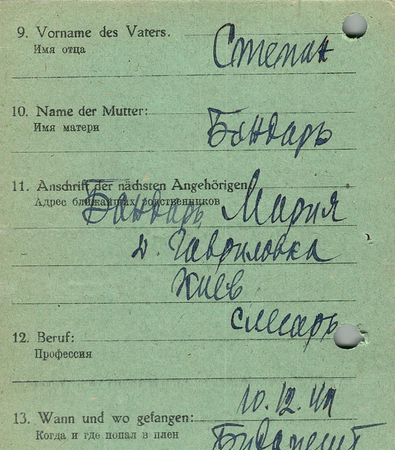 9. Vorname des Vaters.
Имя отца
Степан
10. Name der Mutter:
Имя матери
Бандарь
11. Anschrift der nächsten Angehörigen
Адрес ближайших родственников
Бандарь Мария
д. Гавриловка
Киев
12. Beruf:
Профессия
слесарь
13. Wann und wo gefangen:
Когда и где попал в плен
10.12.44
Будапешт